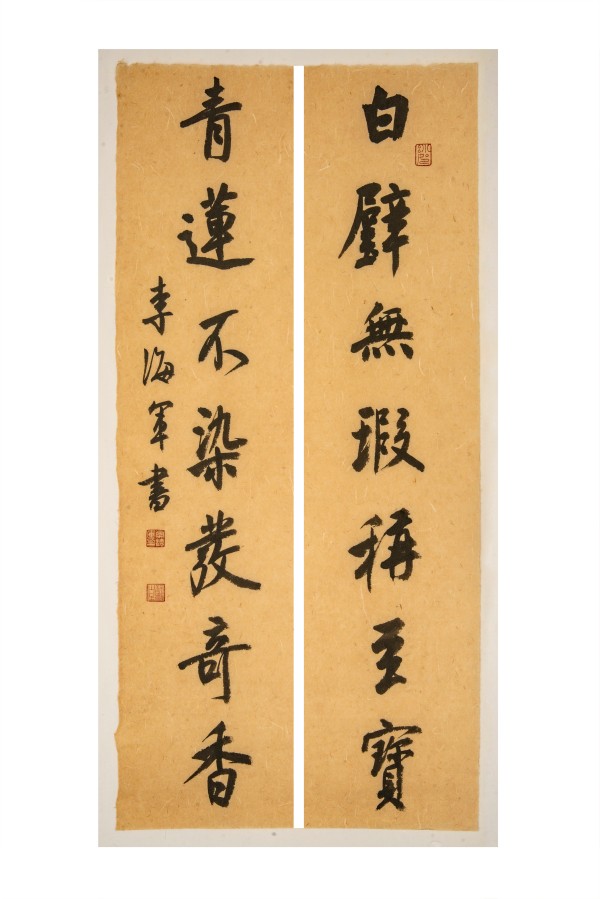 白璧無瑕稱至寶
青蓮不染發奇香
李海軍書